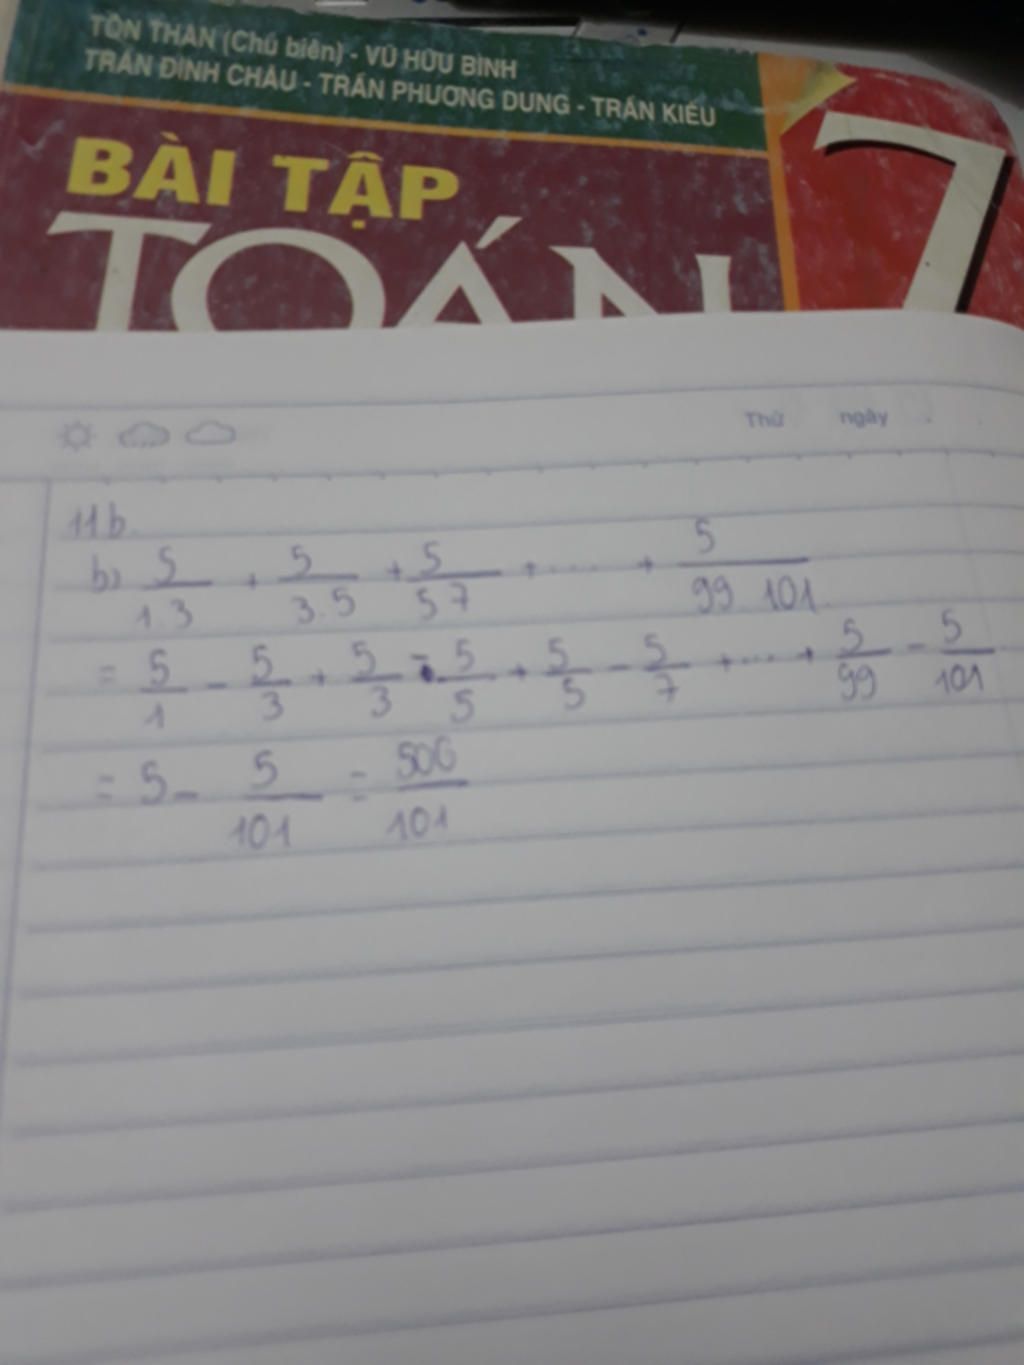 TÔN THÂN (Chủ biên) - VŨ HỮU BÌNH
TRẦN ĐÌNH CHÂU - TRẦN PHƯƠNG DUNG - TRẦN KIỀU
BÀI TẬP
TOÁN 7
Thứ ngày
11b.
b) 5/1.3 + 5/3.5 + 5/5 7 + .... + 5/99 101
= 5/1 - 5/3 + 5/3 - 5/5 + 5/5 - 5/7 + ... + 5/99 - 5/101
= 5 - 5/101 = 506/101